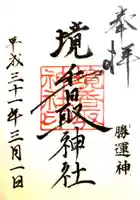 奉拝
勝運神
境香取神社
平成三十一年三月一日